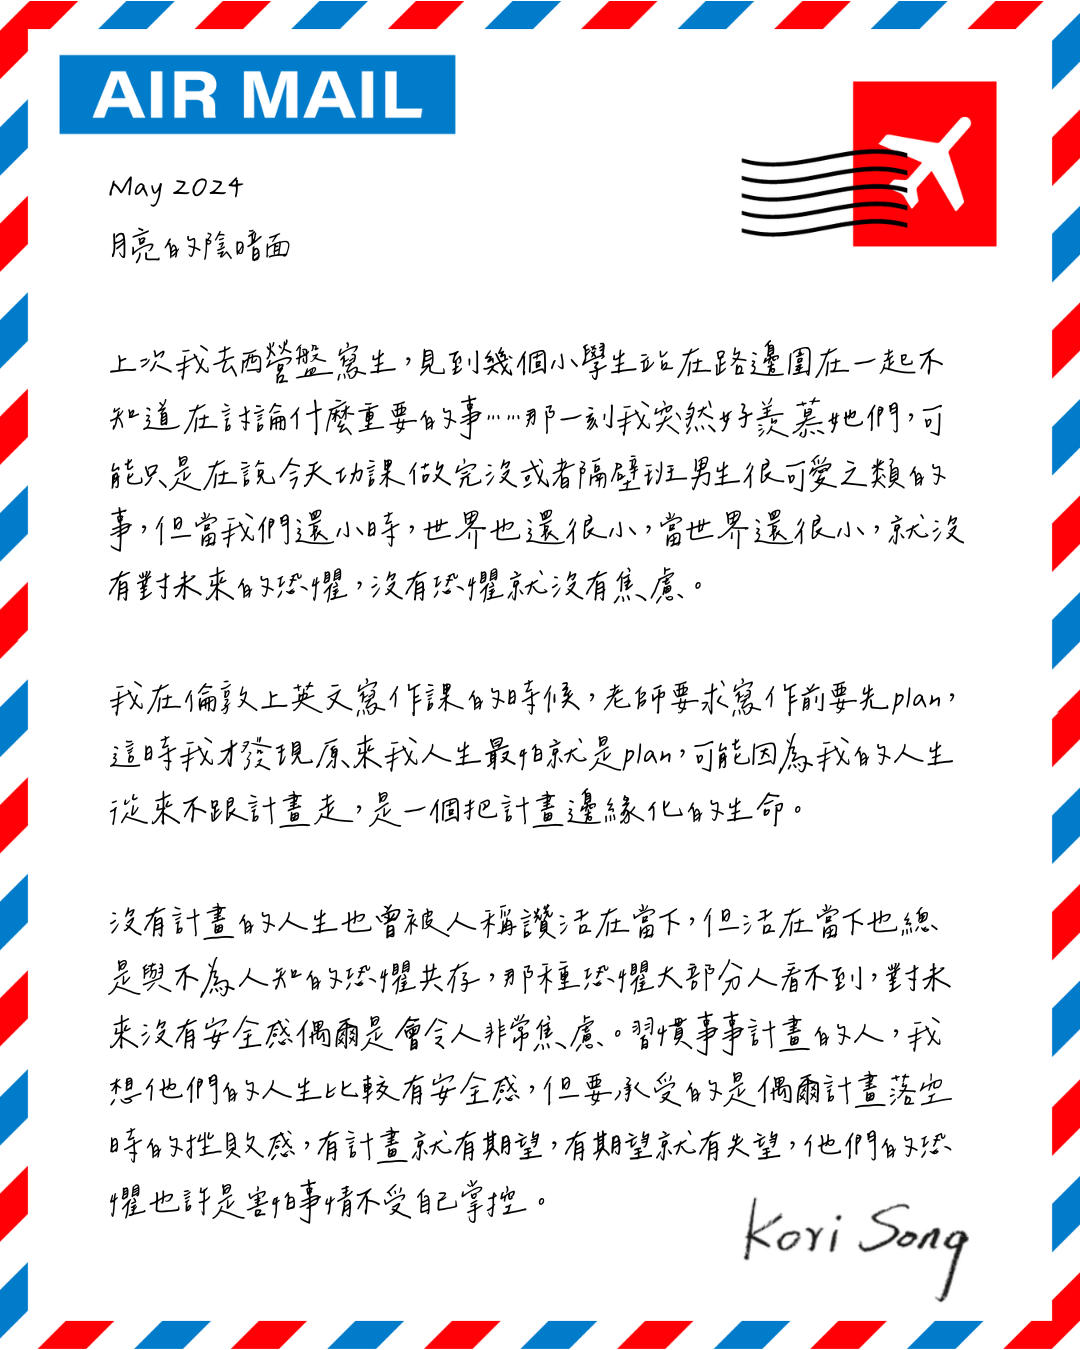 AIR MAIL
May 2024
月亮的陰暗面
上次我去西營盤寫生，見到幾個小學生站在路邊圍在一起不
知道在討論什麼重要的事……那一刻我突然好羨慕她們，可
能只是在說今天功課做完沒或者隔壁班男生很可愛之類的
事，但當我們還小時，世界也還很小，當世界還很小，就沒
有對未來的恐懼，沒有恐懼就沒有焦慮。
我在倫敦上英文寫作課的時候，老師要求寫作前要先plan，
這時我才發現原來我人生最怕就是plan，可能因為我的人生
從來不跟計畫走，是一個把計畫邊緣化的生命。
沒有計畫的人生也曾被人稱讚活在當下，但活在當下也總
是與不為人知的恐懼共存，那種恐懼大部分人看不到，對未
來沒有安全感偶爾是會令人非常焦慮。習慣事事計畫的人，我
想他們的人生比較有安全感，但要承受的是偶爾計畫落空
時的挫敗感，有計畫就有期望，有期望就有失望，他們的恐
懼也許是害怕事情不受自己掌控。
Kori Song